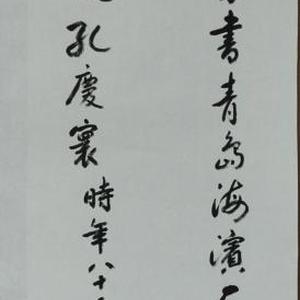 書青島海濱
孔慶寰時年八十